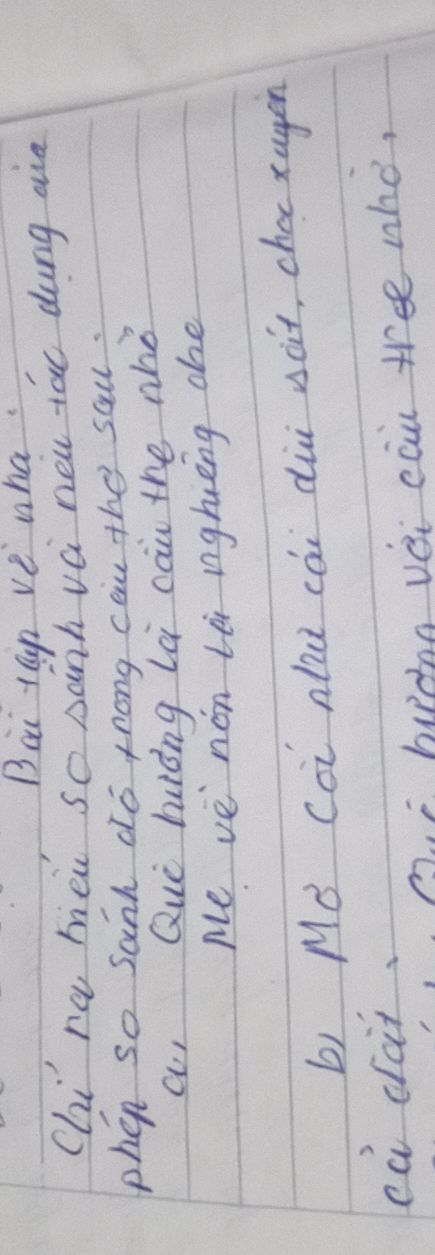 Bài tập về nhà.
Chỉ ra kiểu so sánh và nêu tác dụng của
phép so sánh đó trong câu thơ sau.
a, Quê hương là cầu tre nhỏ
Mẹ về nón lá nghiêng che
b, Mỏ Cốc như cái dùi sắt, chọc xuyên
cả đất.
Quê hương với cầu tre nhỏ,